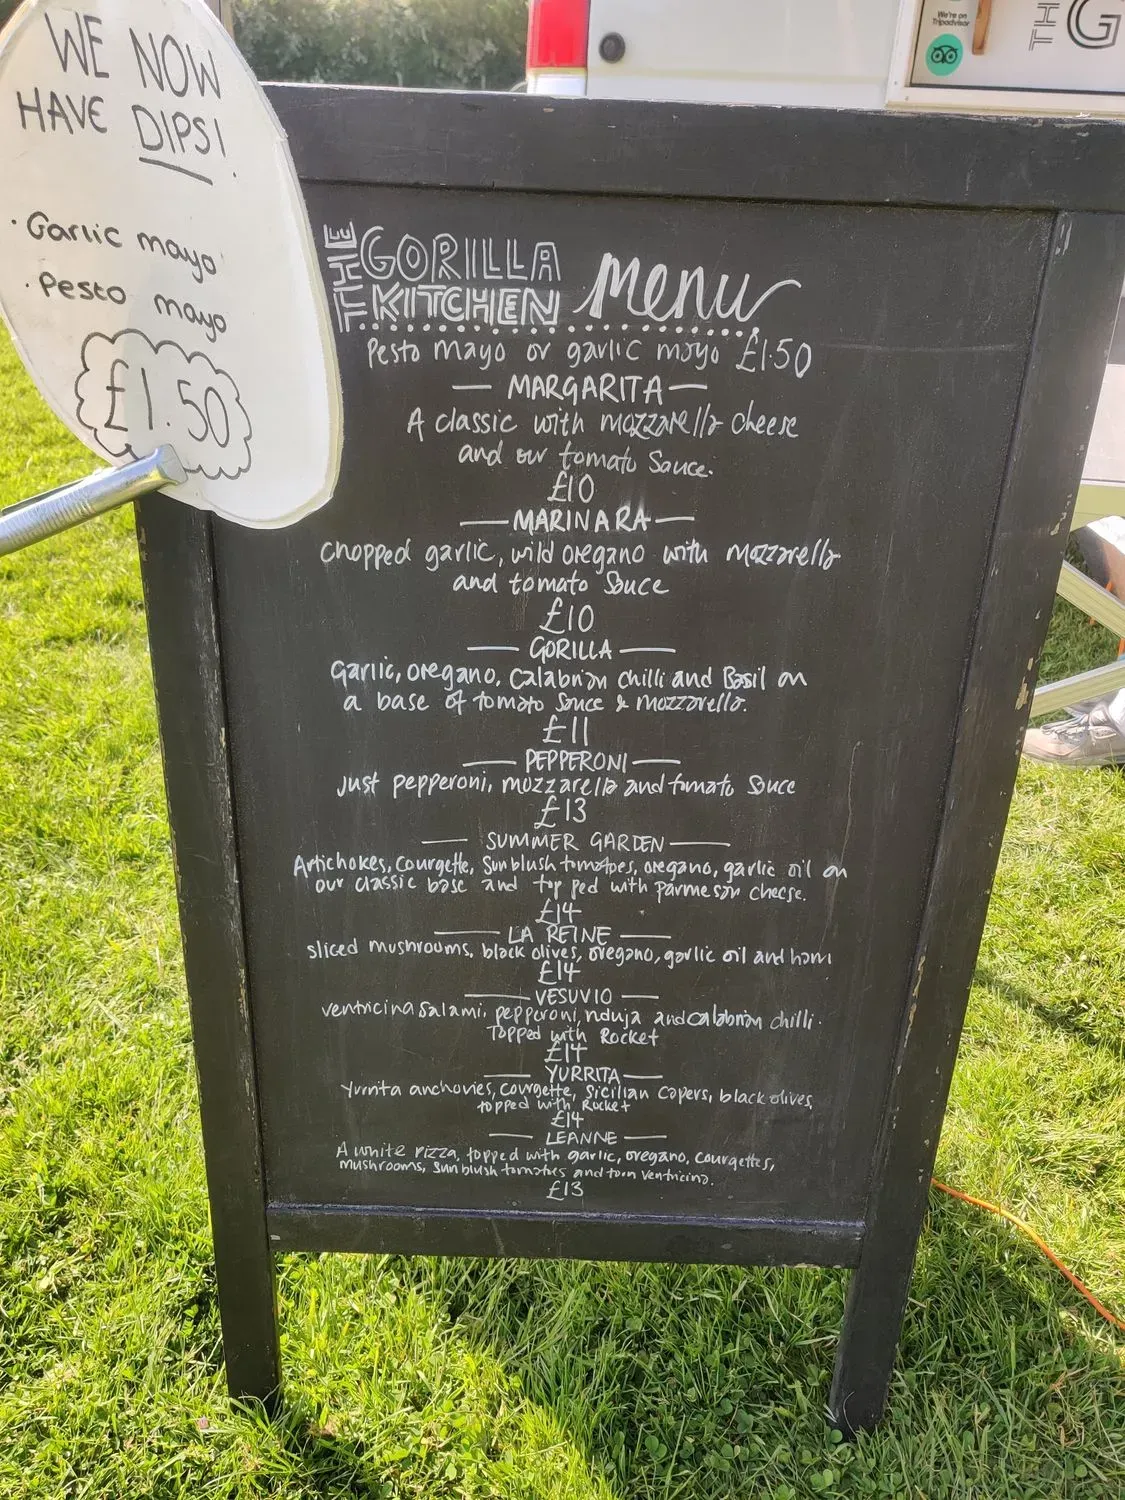 WE NOW
HAVE DIPS!
· Garlic mayo
· Pesto mayo
£1.50
We're on
Tripadvisor
THE G
THE GORILLA
KITCHEN menu
Pesto mayo or garlic mayo £1.50
— MARGARITA —
A classic with mozzarella cheese
and our tomato sauce.
£10
— MARINARA —
chopped garlic, wild oregano with mozzarella
and tomato sauce
£10
— GORILLA —
Garlic, oregano, Calabrian chilli and Basil on
a base of tomato sauce & mozzarella.
£11
— PEPPERONI —
Just pepperoni, mozzarella and tomato sauce
£13
— SUMMER GARDEN —
Artichokes, courgette, Sunblush tomatoes, oregano, garlic oil on
our classic base and topped with parmesan cheese.
£14
— LA REINE —
sliced mushrooms, black olives, oregano, garlic oil and ham
£14
— VESUVIO —
ventricina salami, pepperoni, nduja and calabrian chilli.
Topped with Rocket
£14
— YURRITA —
Yurrita anchovies, courgette, Sicilian capers, black olives,
topped with Rocket
£14
— LEANNE —
A white pizza, topped with garlic, oregano, courgettes,
mushrooms, sunblush tomatoes and torn ventricina.
£13